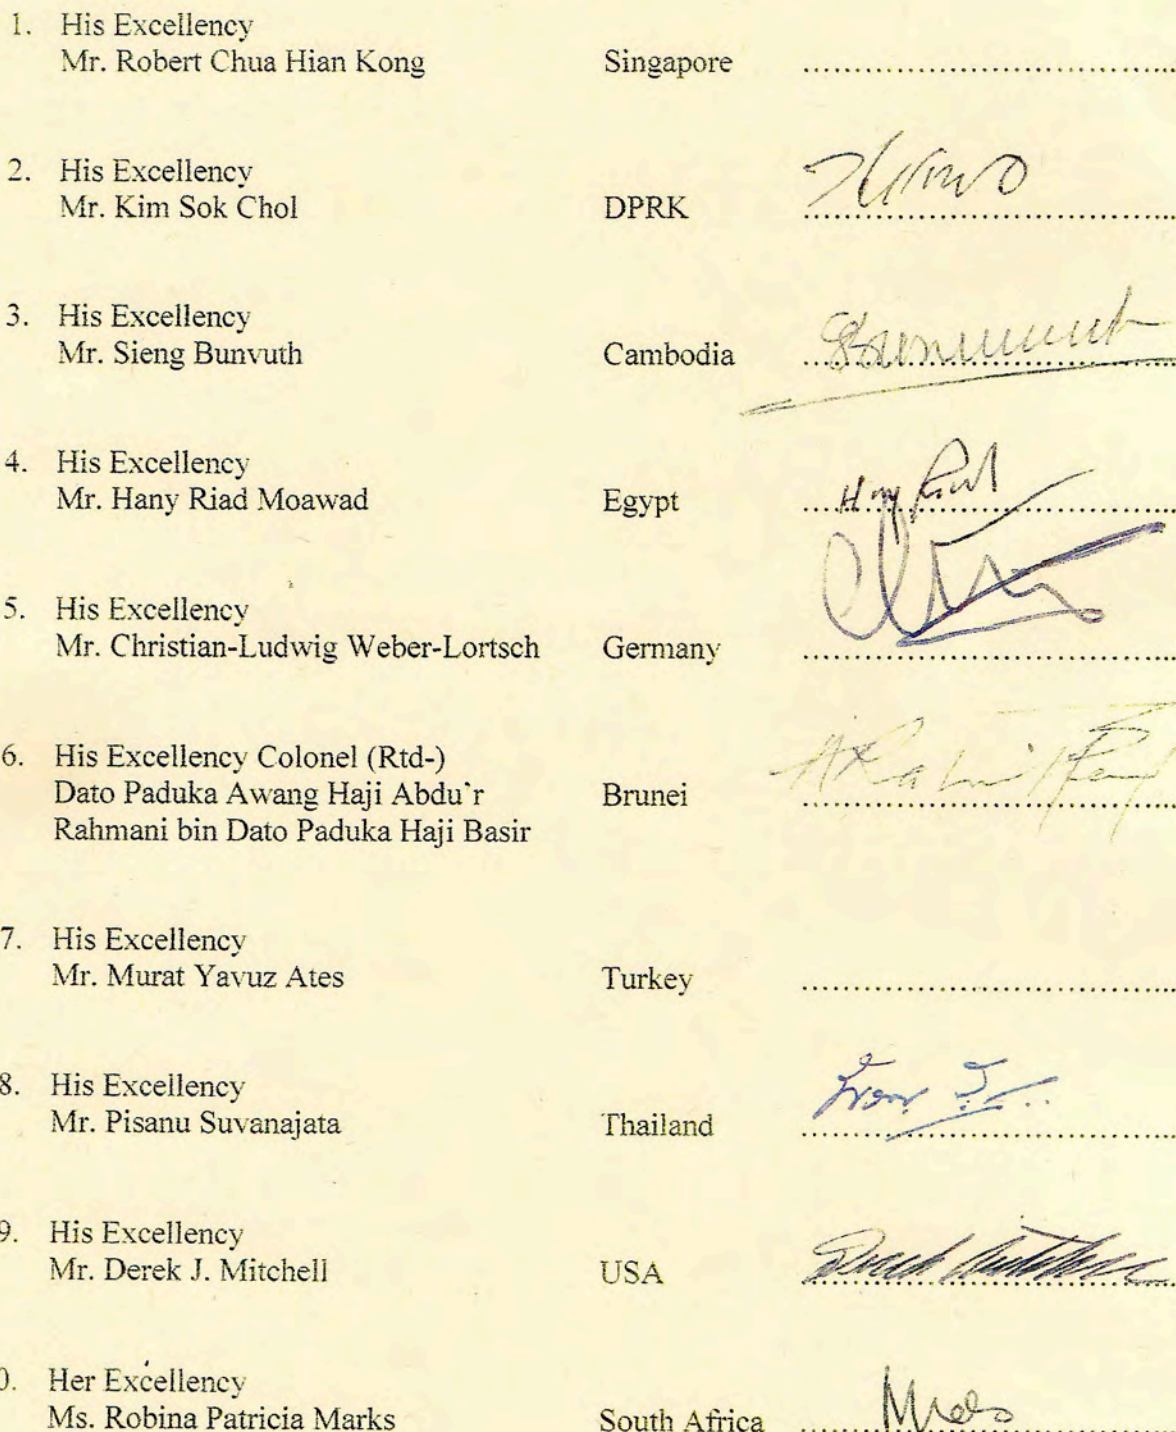 1. His Excellency
Mr. Robert Chua Hian Kong Singapore ....................................
2. His Excellency
Mr. Kim Sok Chol DPRK ....................................
3. His Excellency
Mr. Sieng Bunvuth Cambodia ....................................
4. His Excellency
Mr. Hany Riad Moawad Egypt ....................................
5. His Excellency
Mr. Christian-Ludwig Weber-Lortsch Germany ....................................
6. His Excellency Colonel (Rtd-)
Dato Paduka Awang Haji Abdu'r Brunei ....................................
Rahmani bin Dato Paduka Haji Basir
7. His Excellency
Mr. Murat Yavuz Ates Turkey ....................................
8. His Excellency
Mr. Pisanu Suvanajata Thailand ....................................
9. His Excellency
Mr. Derek J. Mitchell USA ....................................
0. Her Excellency
Ms. Robina Patricia Marks South Africa ....................................